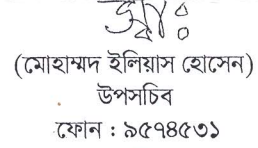 (মোহাম্মদ ইলিয়াস হোসেন)
উপসচিব
ফোন : ৯৫৭৪৫৩১